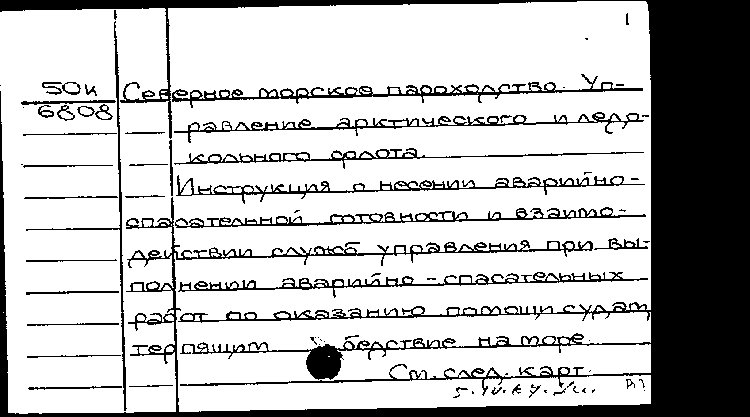 1
50к Северное морское пароходство. Уп-
6808 равление арктического и ледо-
кольного флота.
Инструкция о несении аварийно-
спасательной готовности и взаимо-
действии служб управления при вы-
полнении аварийно-спасательных
работ по оказанию помощи судам,
терпящим бедствие на море.
См. след. карт.